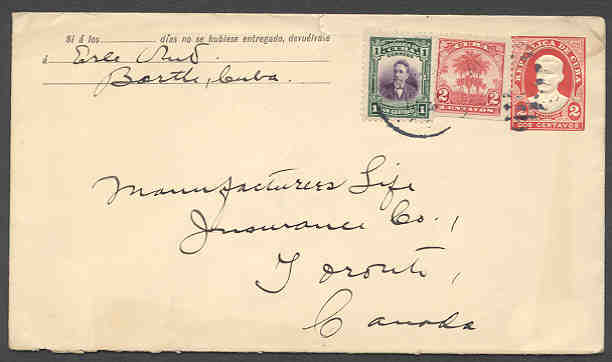 Si á los ........... días no se hubiese entregado, devuélvase
á
Barth, Cuba.
1 CUBA 1
1 UN CENTAVO 1
CUBA
2 2
CENTAVOS
REPUBLICA DE CUBA
DOS CENTAVOS 2
Manufacturers Life
Insurance Co.,
Toronto,
Canada